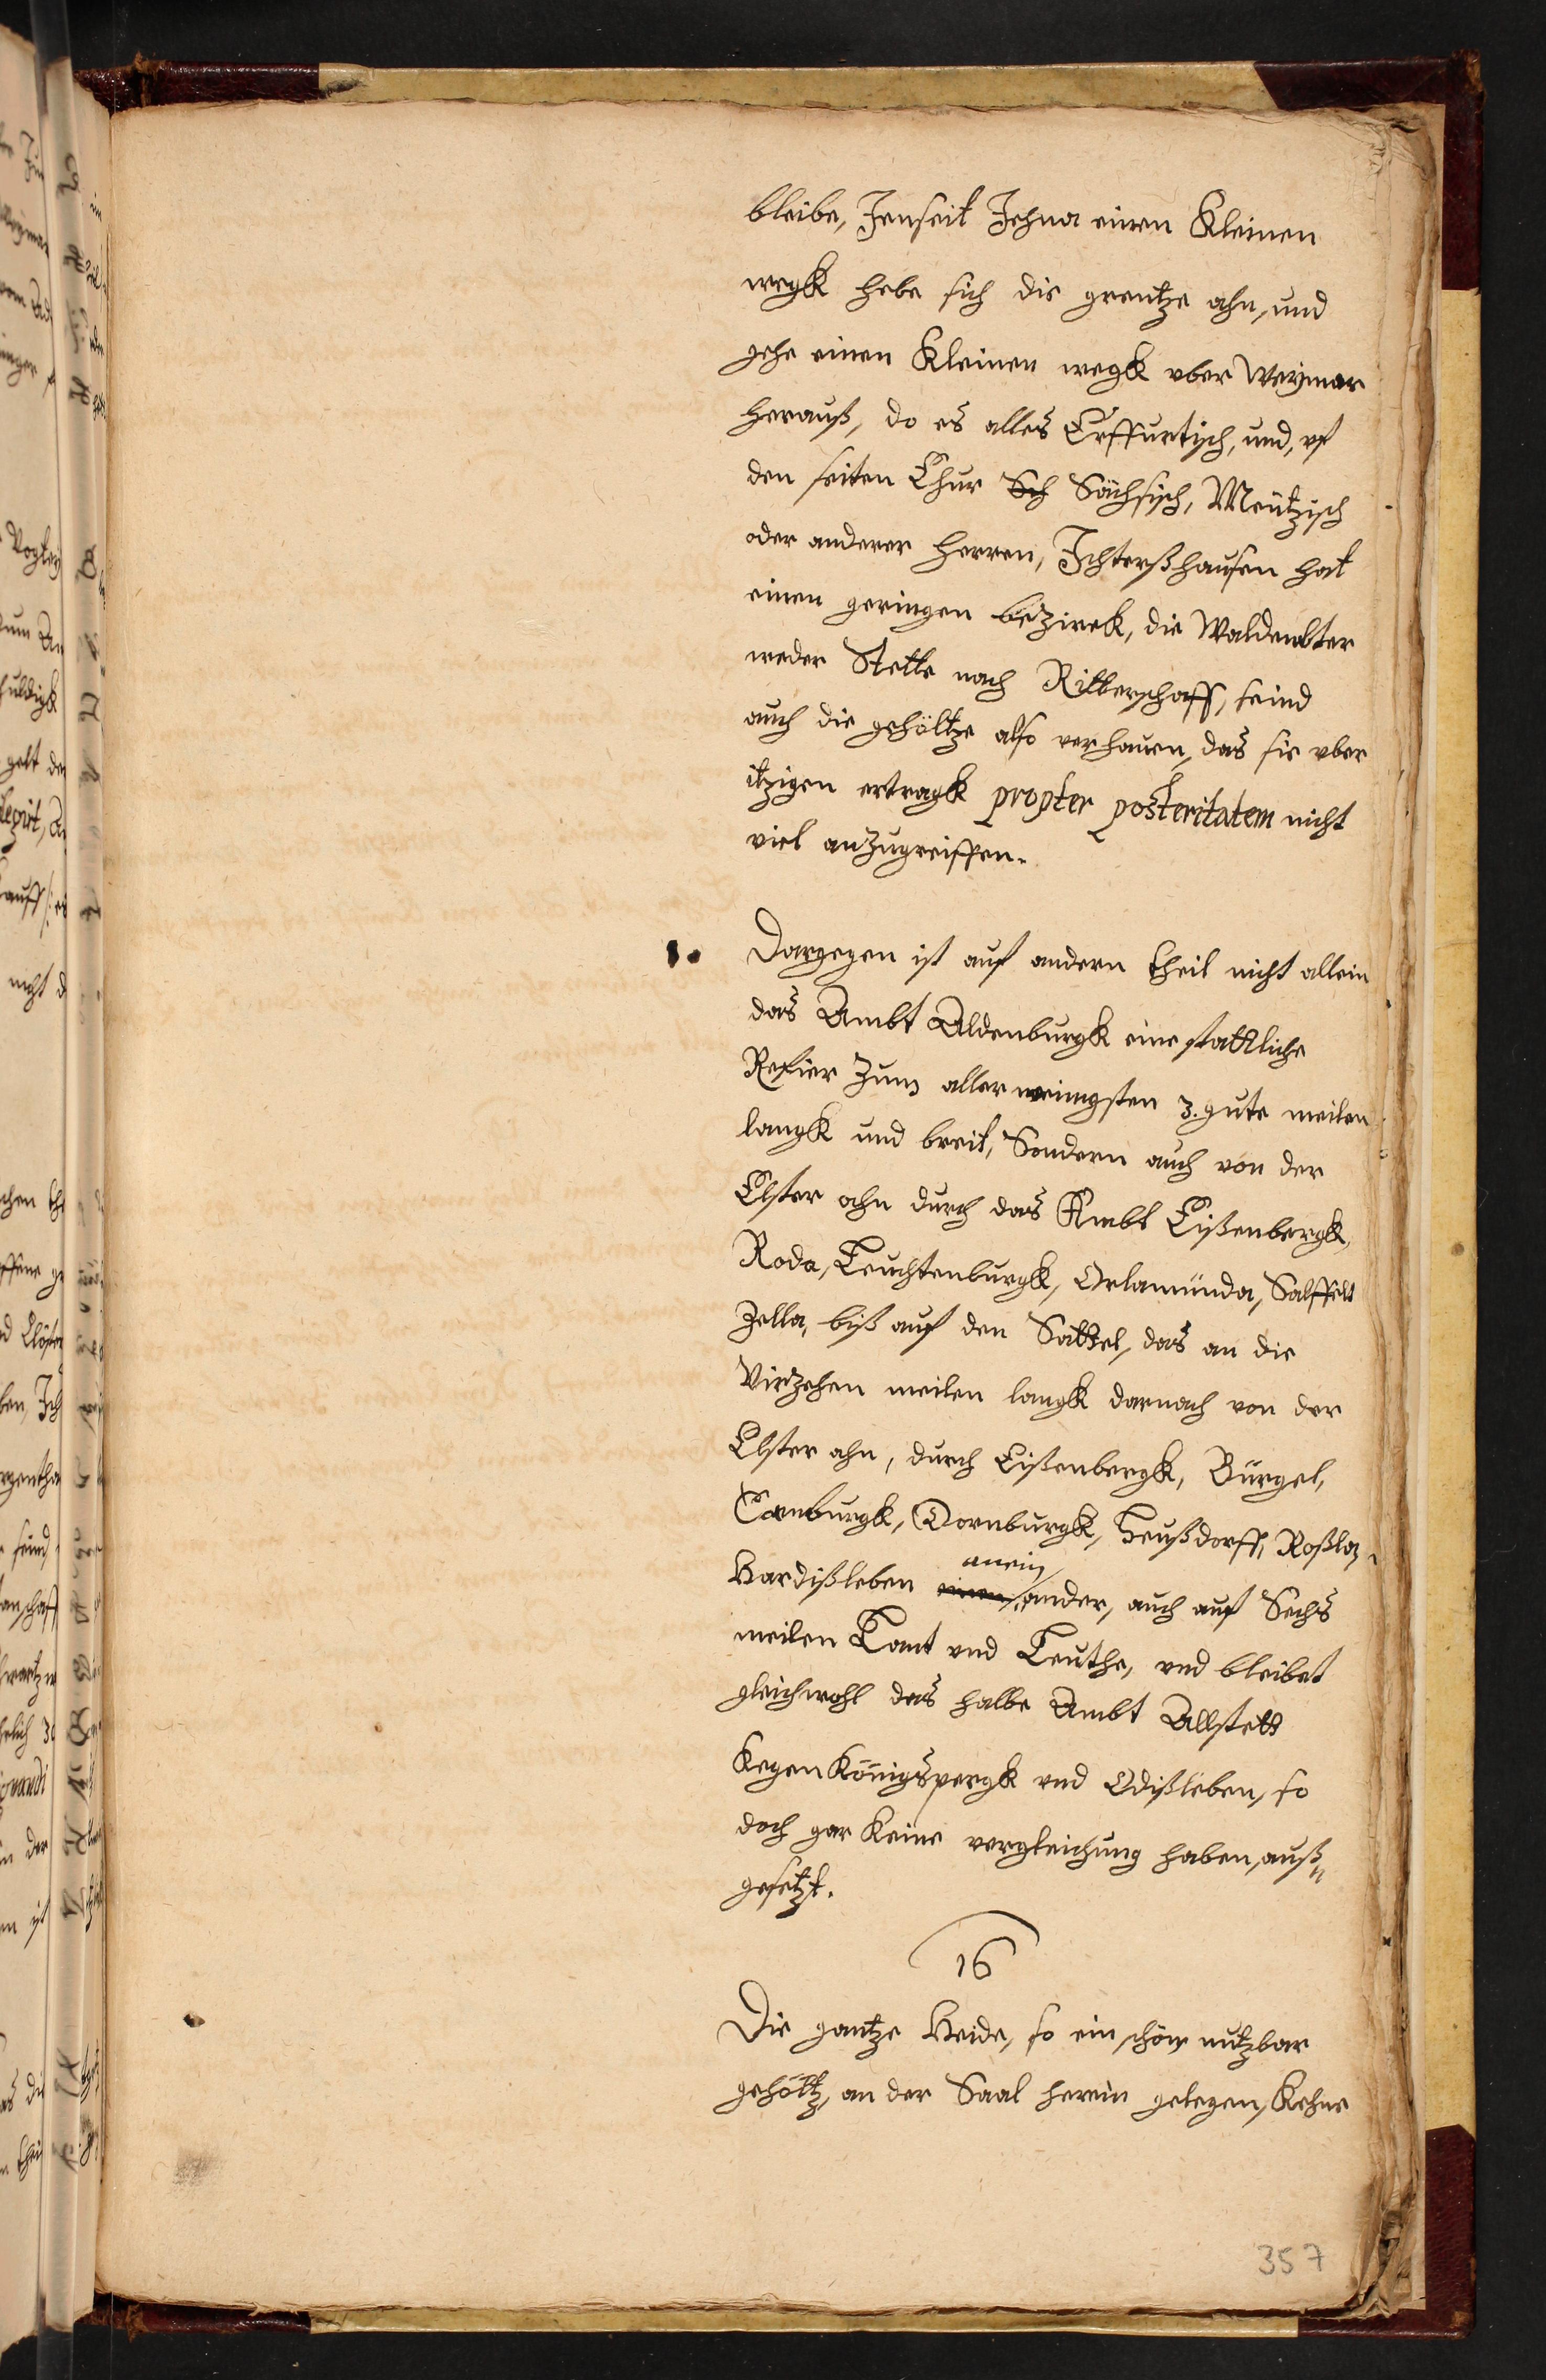 bleibe, Jenseit Jehna einen Kleinen
wegk hebe sich die grentze ahn, und
gehe einen Kleinen wegk vber Weymar
herauß, do es alles Erffurtisch, und, vf
den seiten Chur Sch Sächsisch, Mentzisch
oder anderer Herren, Ichterßhausen hat
einen geringen bezirck, die Waldembter
weder Stette noch Ritterschafft, seind
auch die gehöltze also verhauen, das sie vber
itzigen ertragk propter posteritatem nicht
viel anzugreiffen.
Dargegen ist auf andern theil nicht allein
das Ambt Aldenburgk eine stattliche
Refier zum aller wenigsten 3. gute meilen
langk und breit, Sondern auch von der
Elster ahn durch das Ambt Eißenbergk,
Roda, Leuchtenburgk, Orlamünda, Salffelt
Zella, biß auf den Sattel, das an die
Virzehen meilen langk darnach von der
Elster ahn, durch Eißenbergk, Bürgel,
Camburgk, Dornburgk, Heußdorff, Roßla,
anein
Hardißleben einen ander, auch auf Sechs
meilen Lant vnd Leuthe, vnd bleibet
gleichwohl das halbe Ambt Allstett
Kegen Königspergk vnd Odißleben, so
doch gar Keine vergleichung haben, auß„
gesetzt.
16
Die gantze Heide, so ein schön nutzbar
gehöltz, an der Saal herein gelegen, Kehne
357